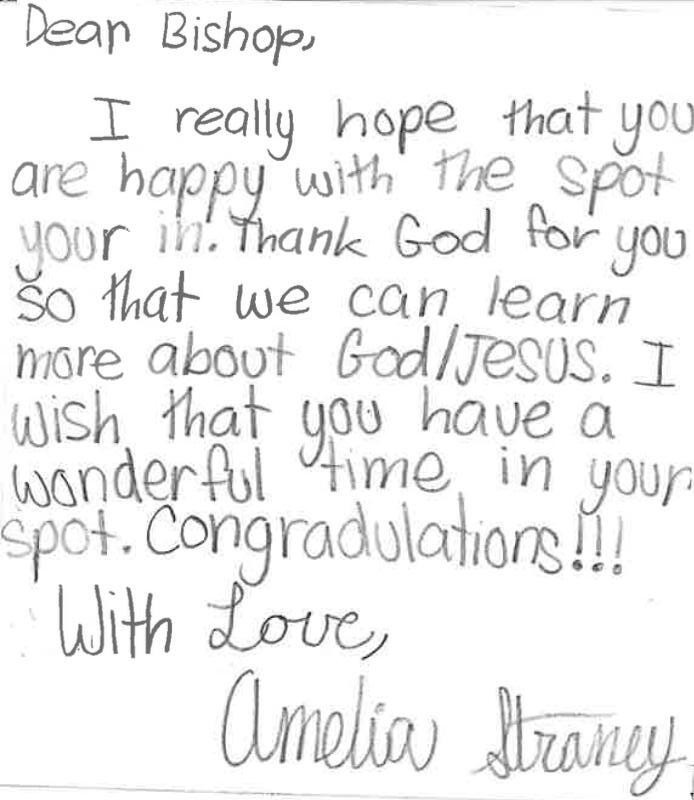 Dear Bishop,
I really hope that you
are happy with the spot
your in. Thank God for you
so that we can learn
more about God/Jesus. I
wish that you have a
wonderful time in your
spot. Congradulations!!!
With Love,
Amelia Straney